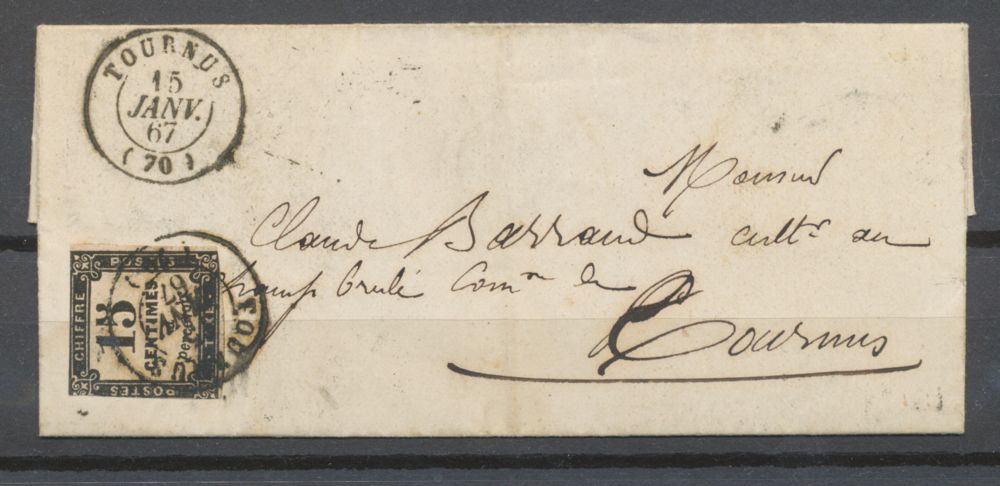 TOURNUS
15
JANV.
67
(70)
Monsieur
Claude Barraud cultr au
Champ brulé Comne de
Tournus
POSTES
CHIFFRE
15
CENTIMES
à percevoir
TAXE
POSTES
TOURNUS